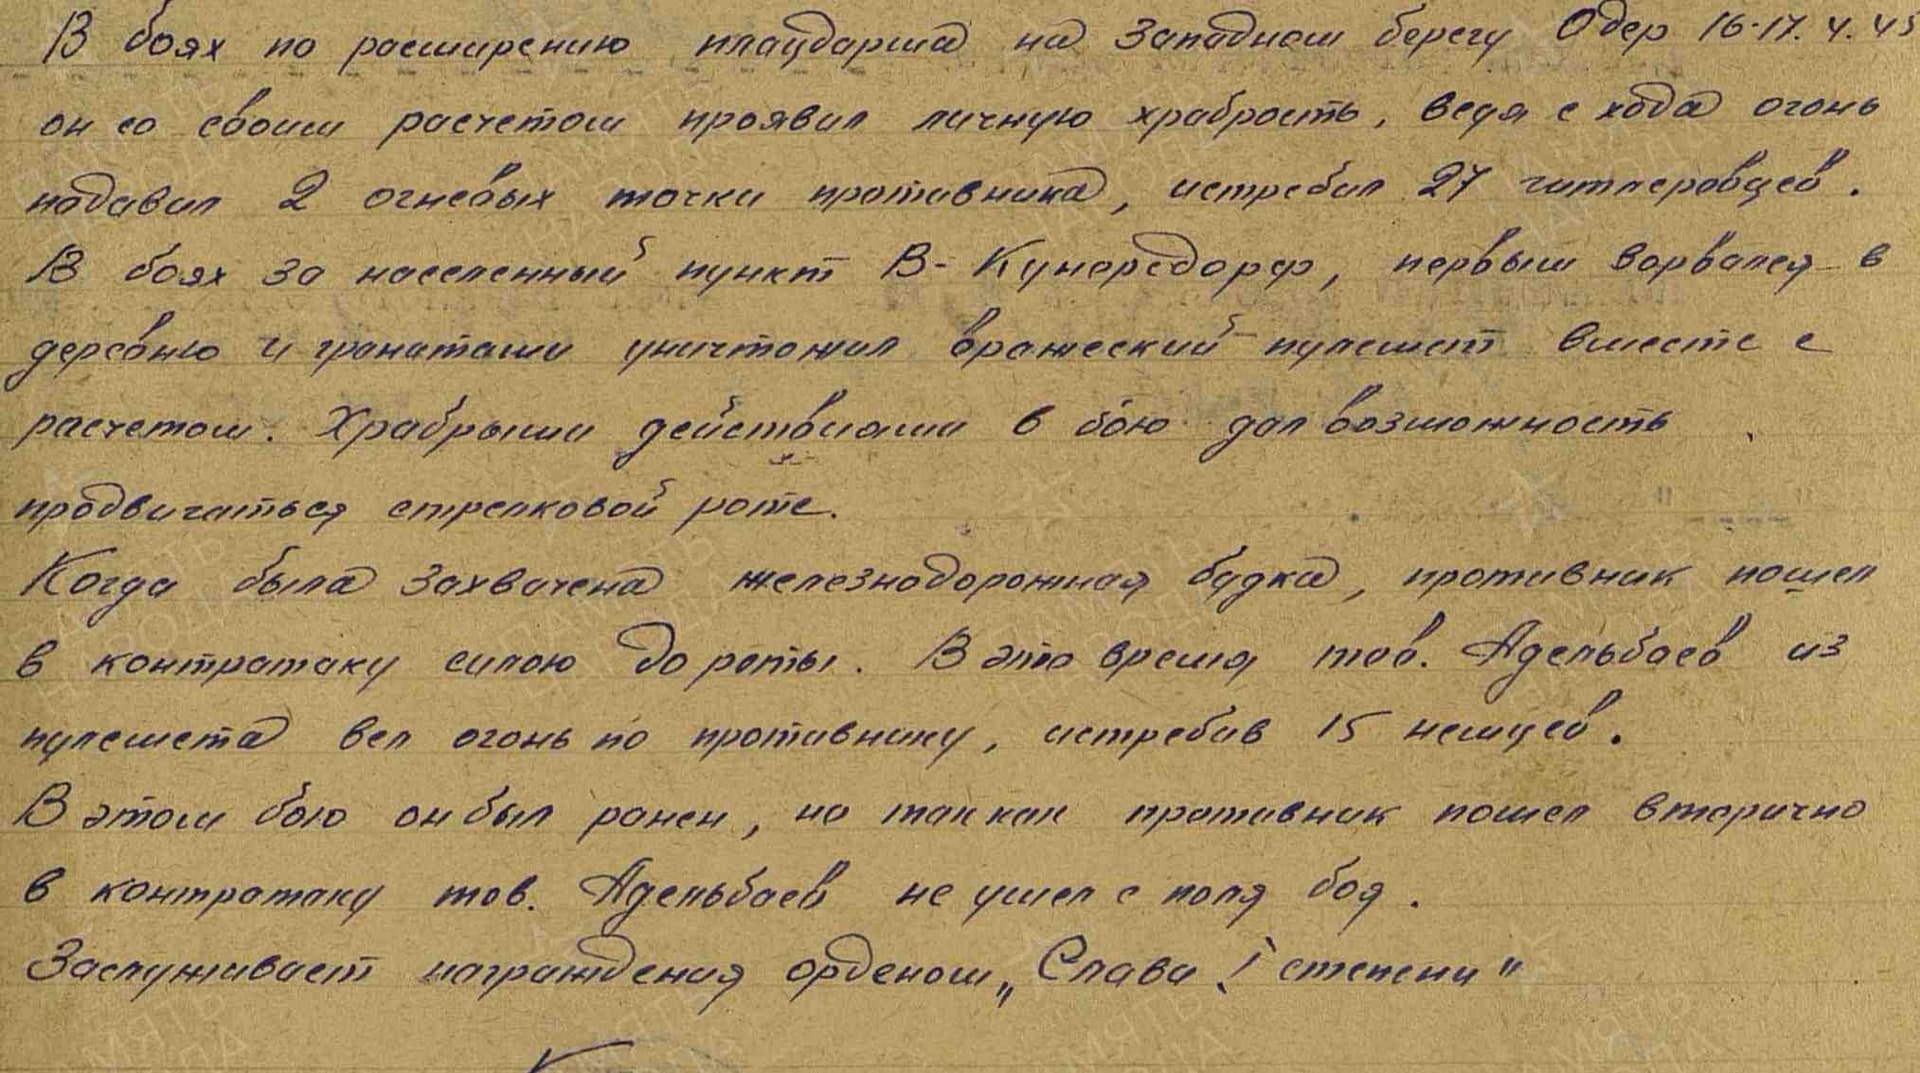 В боях по расширению плацдарма на Западном берегу Одер 16-17.4.45
он со своим расчетом проявил личную храбрость, ведя с хода огонь
подавил 2 огневых точки противника, истребил 27 гитлеровцев.
В боях за населенный пункт В-Кунерсдорф, первым ворвался в
деревню и гранатами уничтожил вражеский пулемет вместе с
расчетом. Храбрыми действиями в бою дал возможность
продвигаться стрелковой роте.
Когда была захвачена железнодорожная будка, противник пошел
в контратаку силою до роты. В это время тов. Адельбаев из
пулемета вел огонь по противнику, истребив 15 немцев.
В этом бою он был ранен, но так как противник пошел вторично
в контратаку тов. Адельбаев не ушел с поля боя.
Заслуживает награждения орденом „Слава I степени"
ПАМЯТЬ НАРОДА